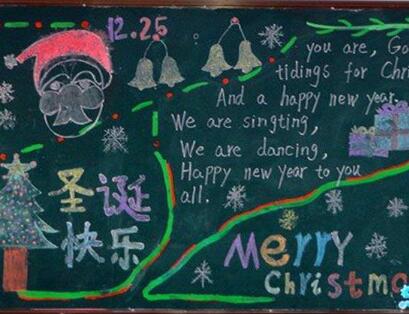 12.25
you are, Go
tidings for Chri
And a happy new year,
We are singting,
We are dancing,
Happy new year to you
all.
圣诞
快乐
Merry
Christma